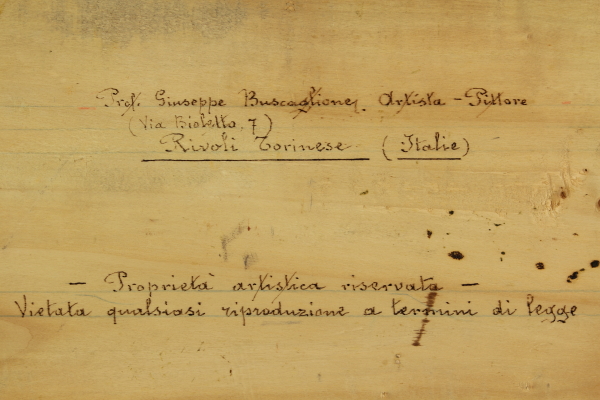 Prof. Giuseppe Buscaglione, Artista - Pittore
(Via Bioletto, 7)
Rivoli Torinese (Italie)
- Proprietà artistica riservata -
Vietata qualsiasi riproduzione a termini di legge